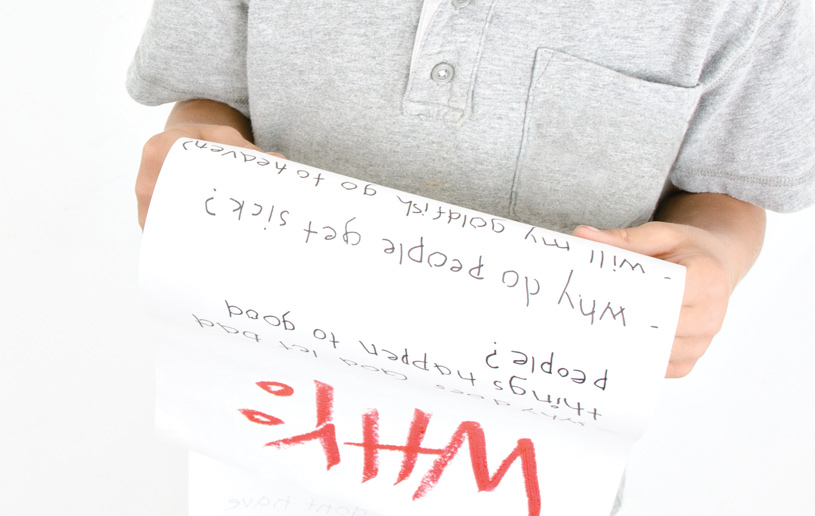 WHY:
- why does God let bad
things happen to good
people?
- why do people get sick?
- will my goldfish go to heaven?